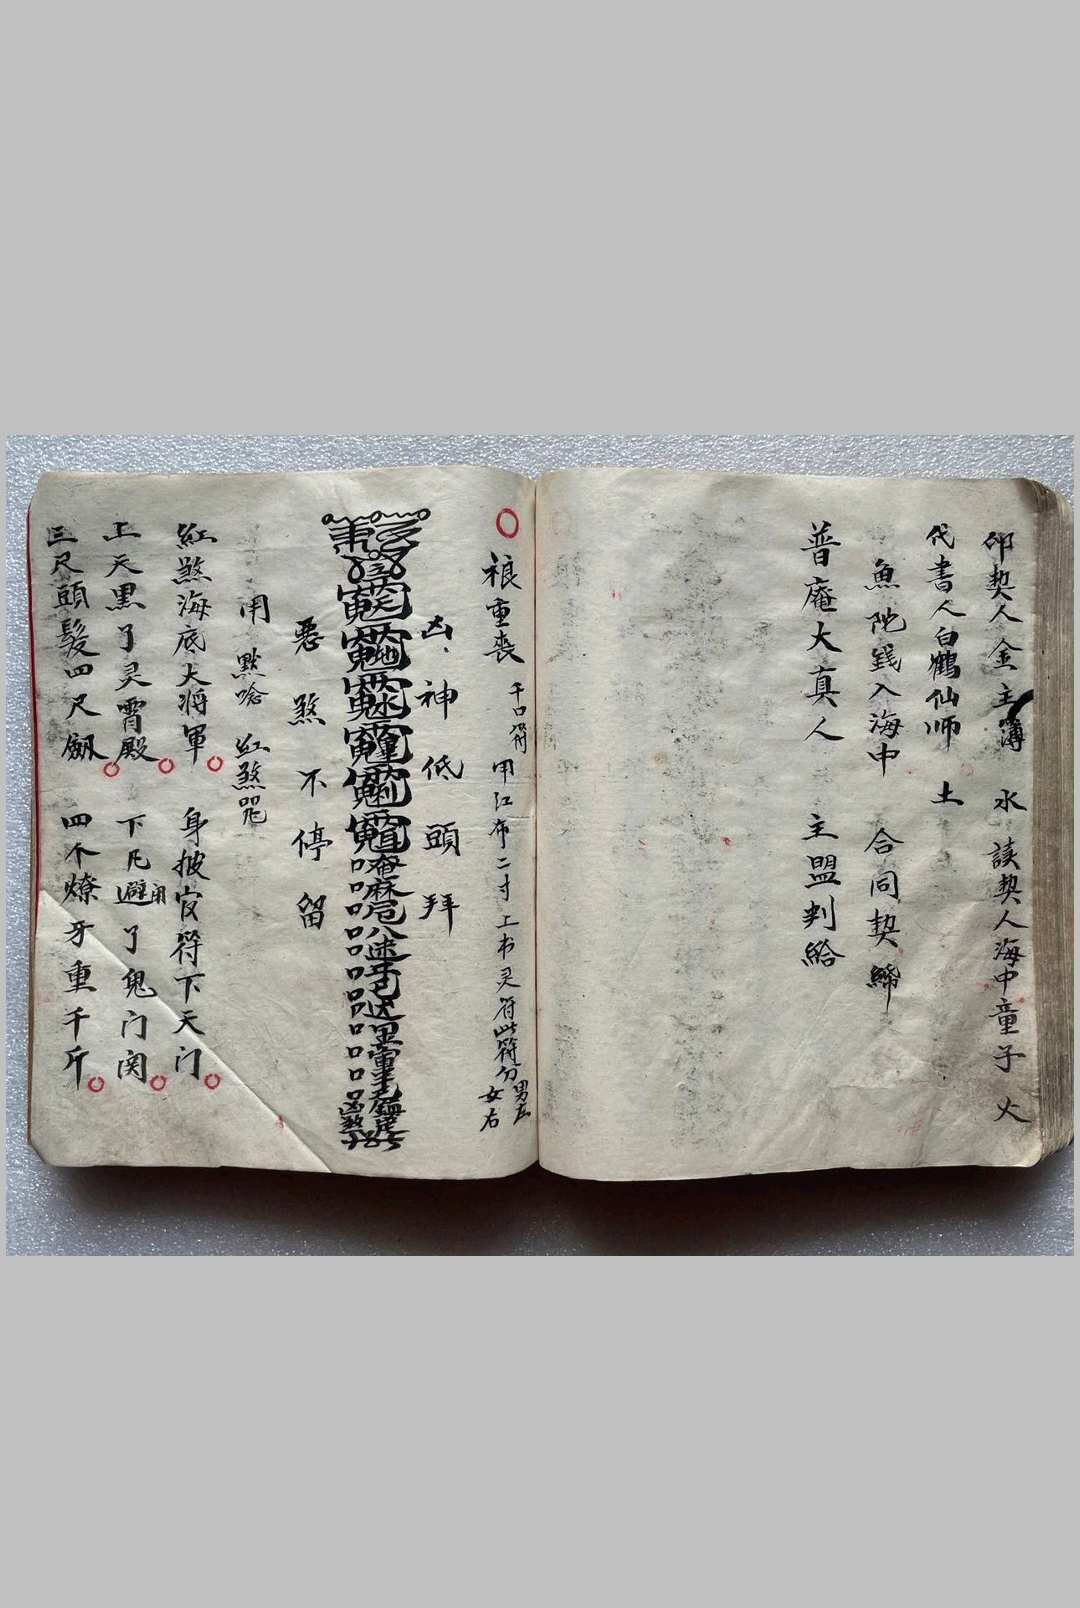 卬契人金主簿 水 读契人海中童子 火
代书人白鶴仙师 土
魚陀錢入海中 合同契
普庵大真人 主盟判給
禳重喪 千口符 甲江布二寸上书灵符此符分男左女右
凶神低頭拜
唵嘛
凶煞
惡煞不停留
用 點唸 紅煞咒
紅煞海底大将軍 身披官符下天门
上天黑了灵霄殿 下凡避用了鬼门関
三尺頭髮四尺劔 四个燎牙重千斤